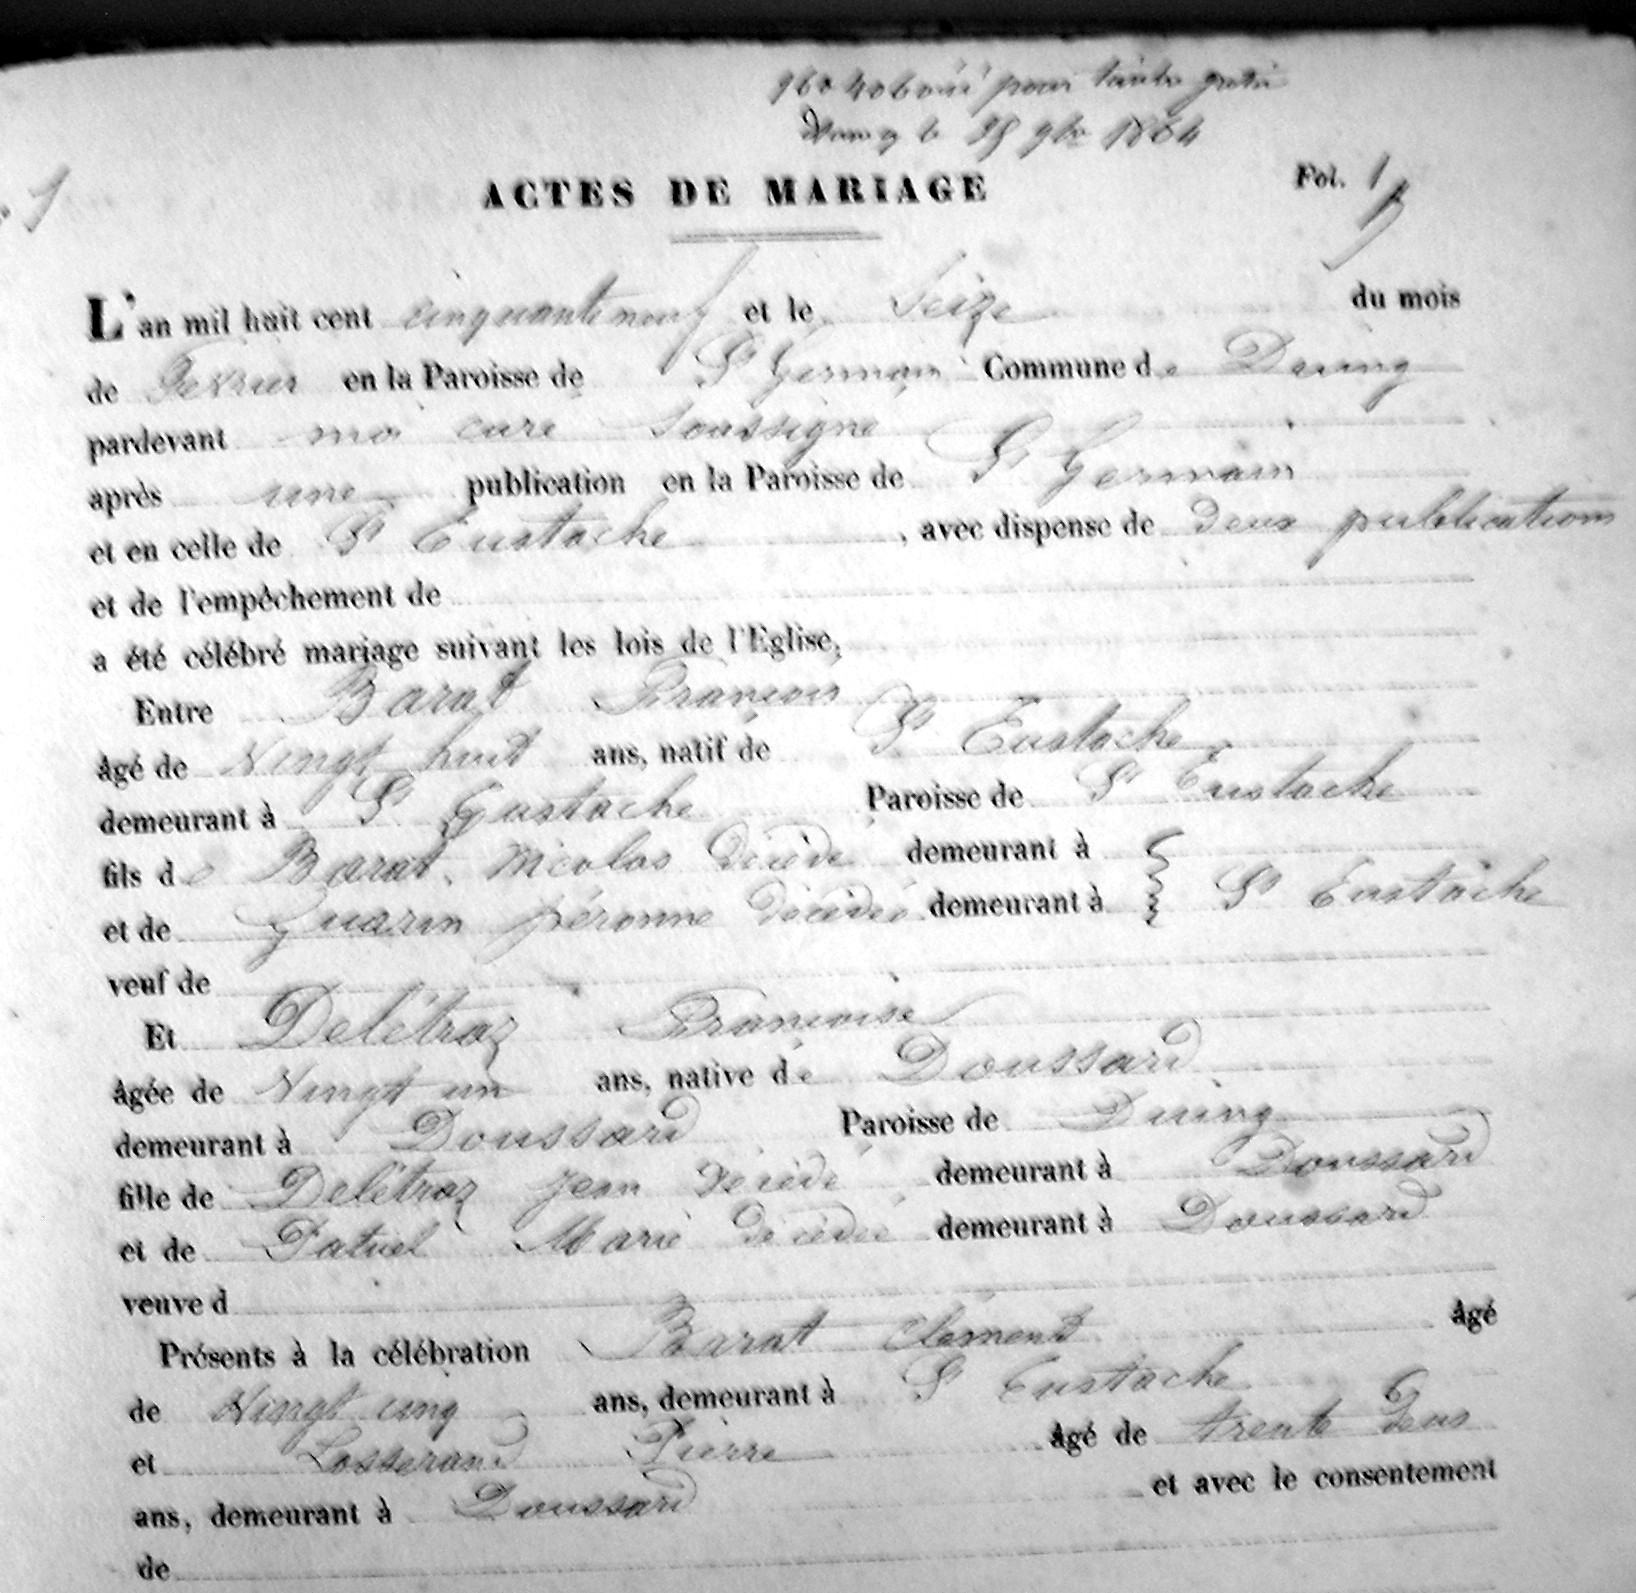 pour
le 1864
ACTES DE MARIAGE
Fol. 1
L'an mil huit cent cinquante neuf et le Seize du mois
de Fevrier en la Paroisse de St Germain Commune de Duing
pardevant moi curé soussigné
après une publication en la Paroisse de St Germain
et en celle de St Eustache, avec dispense de deux publications
et de l'empêchement de
a été célébré mariage suivant les lois de l'Eglise,
Entre Barat François
âgé de Vingt huit ans, natif de St Eustache
demeurant à St Eustache Paroisse de St Eustache
fils de Barat Nicolas décédé demeurant à
et de Guarin péronne décédée demeurant à St Eustache
veuf de
Et Delétraz Françoise
âgée de Vingt un ans, native de Doussard
demeurant à Doussard Paroisse de Duing
fille de Delétraz Jean décédé demeurant à Doussard
et de Patuel Marie décédée demeurant à Doussard
veuve d
Présents à la célébration Barat Clément âgé
de Vingt cinq ans, demeurant à St Eustache
et Losserand Pierre âgé de trente deux
ans, demeurant à Doussard et avec le consentement
de